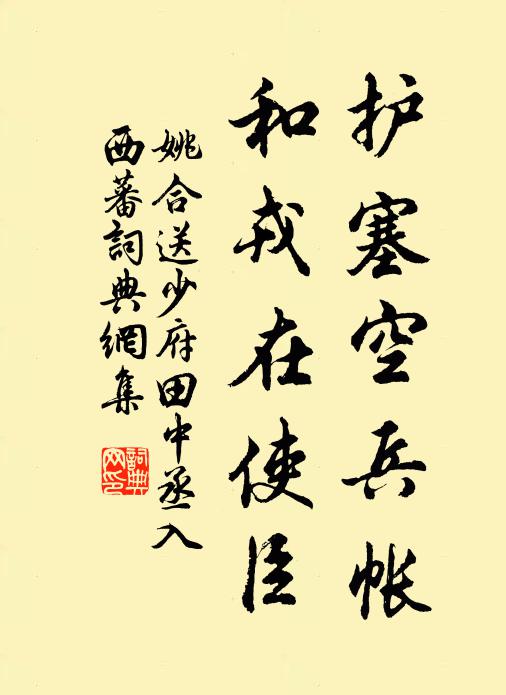 护塞空兵帐
和戎在使臣
姚合送少府田中丞入
西蕃詞典網集
詞典
网印